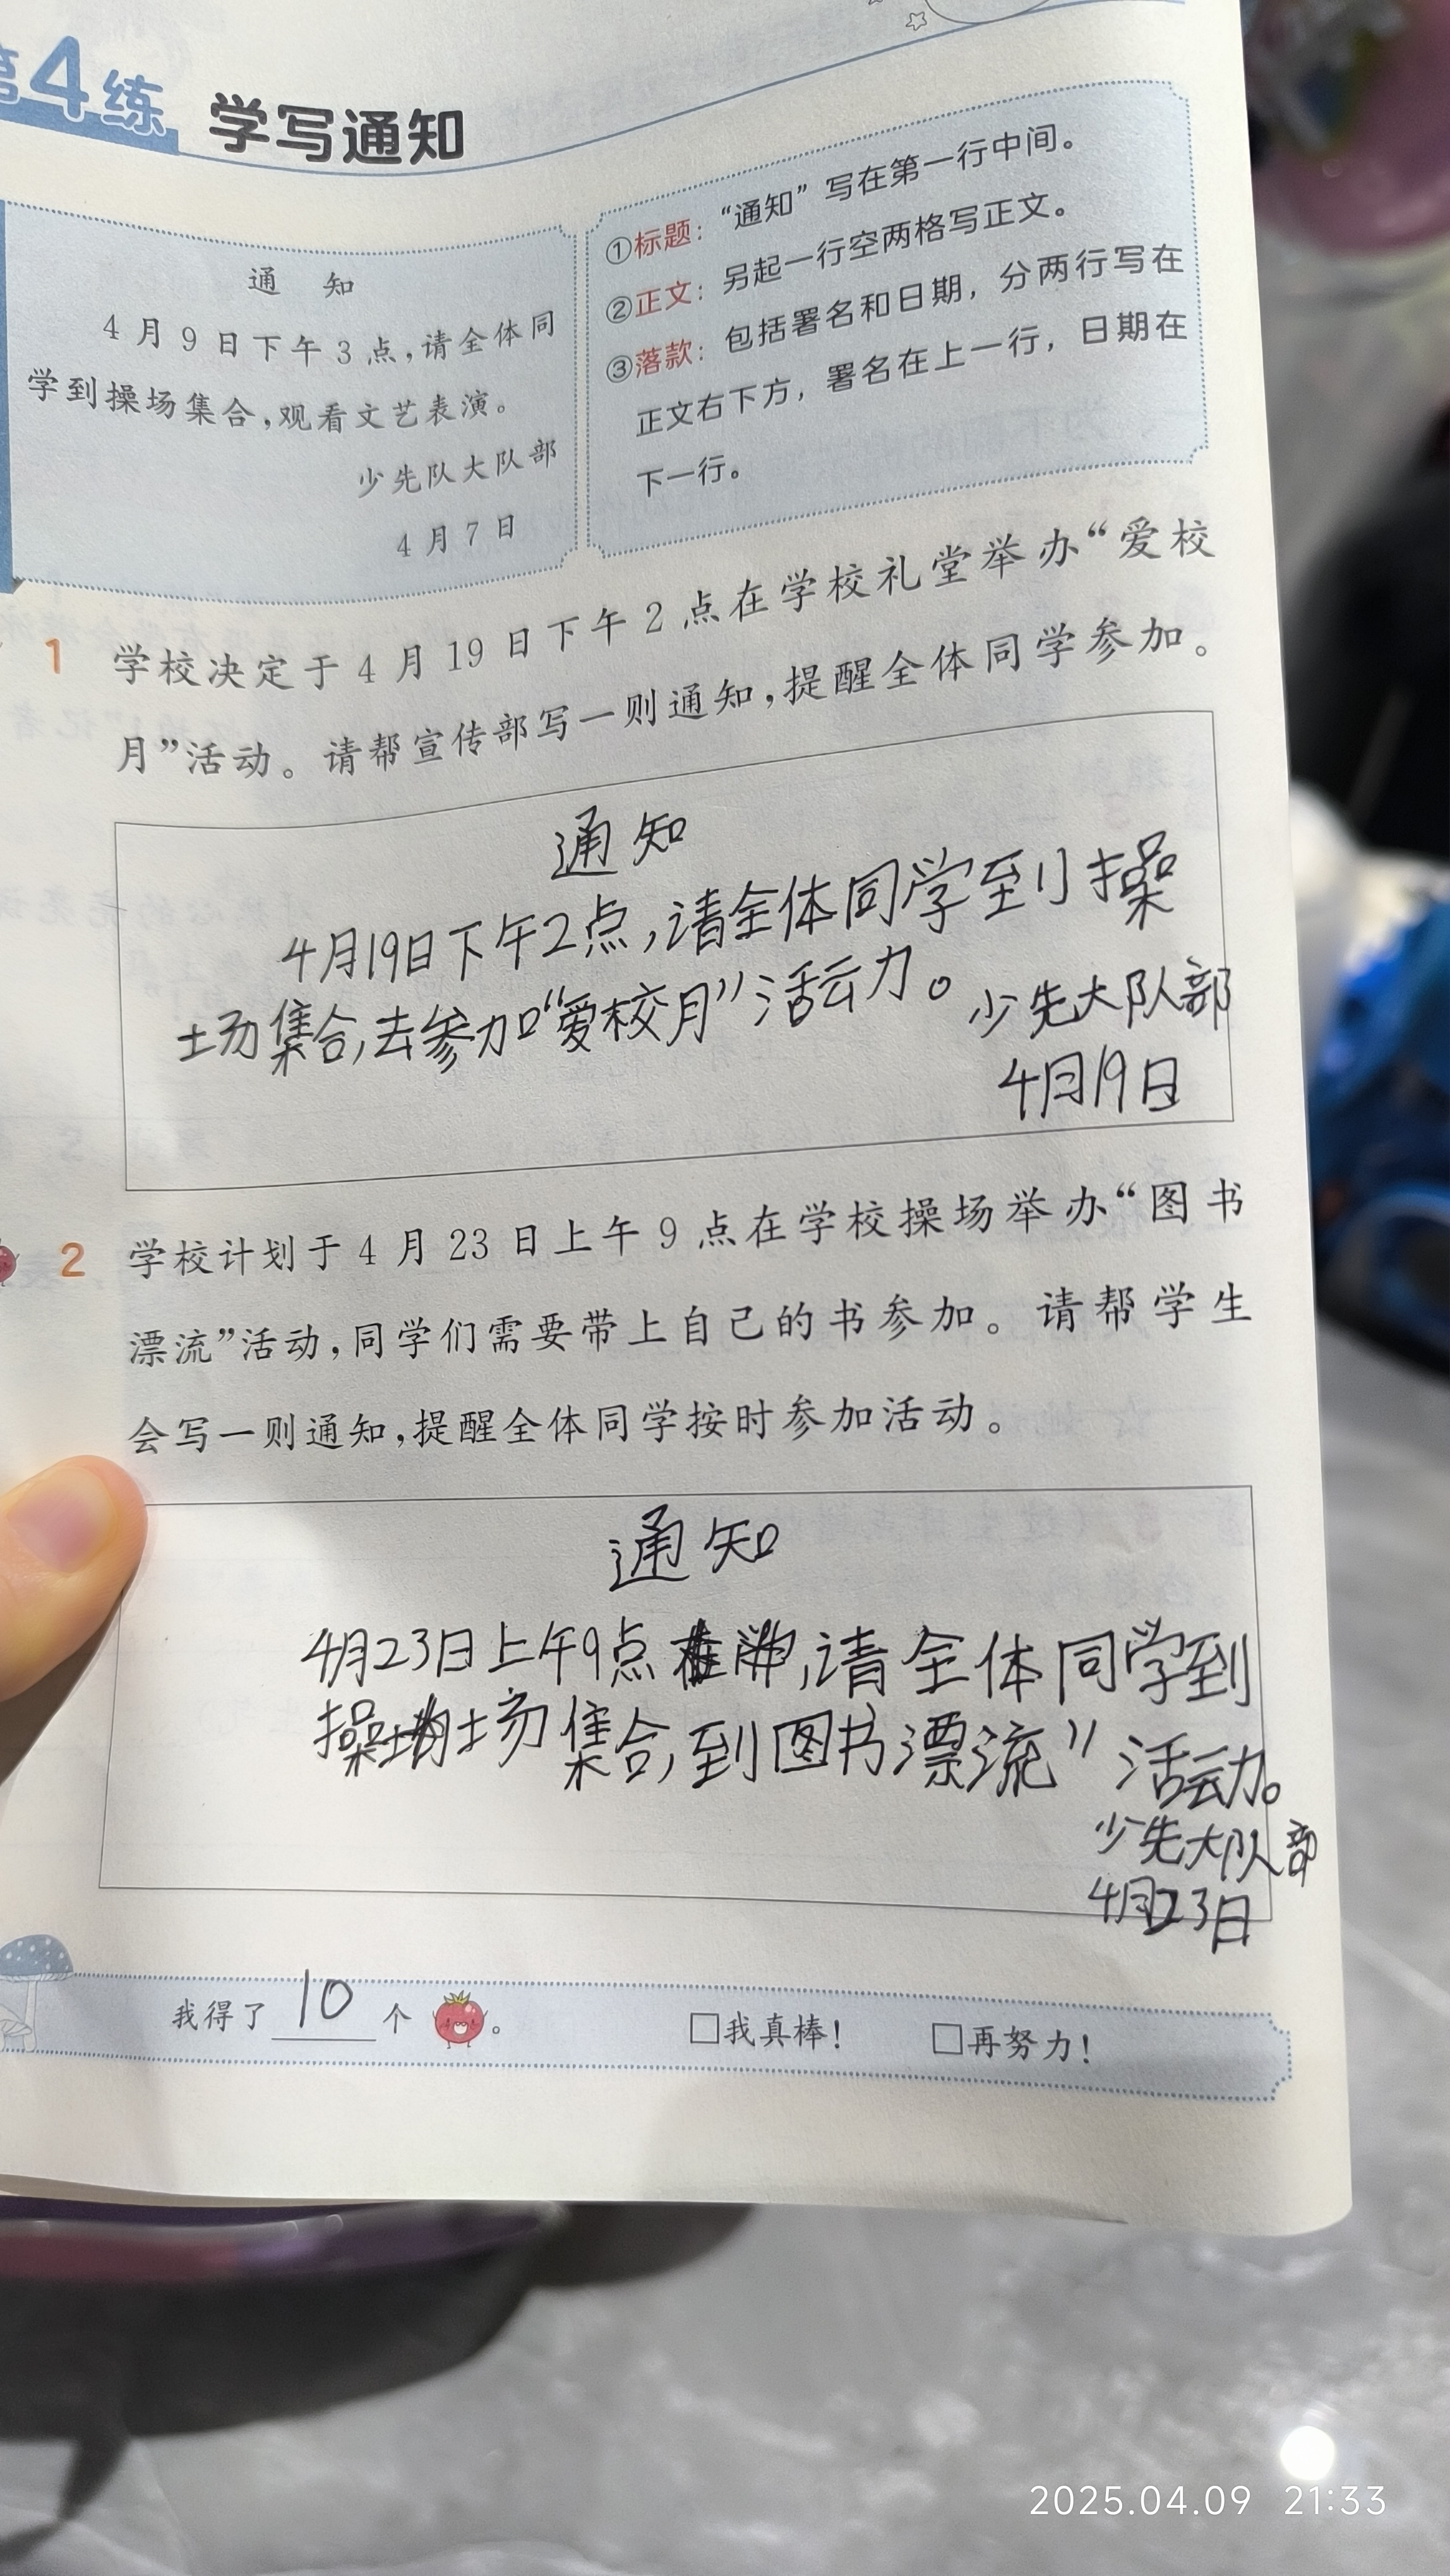 第4练 学写通知
通 知
4月9日下午3点,请全体同
学到操场集合,观看文艺表演。
少先队大队部
4月7日
①标题:“通知”写在第一行中间。
②正文:另起一行空两格写正文。
③落款:包括署名和日期,分两行写在
正文右下方,署名在上一行,日期在
下一行。
1 学校决定于4月19日下午2点在学校礼堂举办“爱校
月”活动。请帮宣传部写一则通知,提醒全体同学参加。
通知
4月19日下午2点,请全体同学到操
场集合,去参加“爱校月”活动。
少先大队部
4月19日
2 学校计划于4月23日上午9点在学校操场举办“图书
漂流”活动,同学们需要带上自己的书参加。请帮学生
会写一则通知,提醒全体同学按时参加活动。
通知
4月23日上午9点,请全体同学到
操场集合,到图书漂流”活动。
少先大队部
4月23日
我得了10个。 □我真棒! □再努力!
2025.04.09 21:33